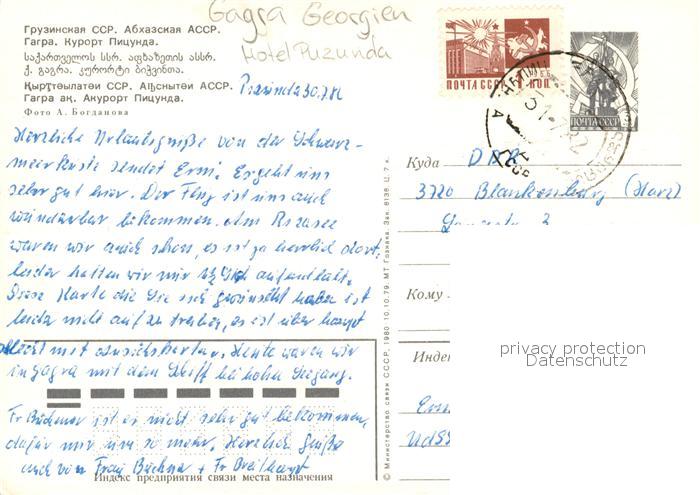 Gagra Georgien
Hotel Pizunda
Грузинская ССР. Абхазская АССР.
Гагра. Курорт Пицунда.
საქართველოს სსრ. აფხაზეთის ასსრ.
ქ. გაგრа. კურორტი ბიჭვინთა.
Қырҭтәылатәи ССР. Аҧснытәи АССР.
Гагра ақ. Акурорт Пицунда.
Фото А. Богданова
Pizunda 30.7.82
ПОЧТА СССР 1 коп
ПОЧТА СССР
Herzliche Urlaubsgrüße von der Schwarz-
meerküste sendet Erni. Es geht uns
sehr gut hier. Der Flug ist uns auch
wunderbar bekommen. Am Rizasee
waren wir auch schon, es ist ja herrlich dort,
leider hatten wir nur Std aufenthalt.
Diese Karte die Sie sich gewünscht haben ist
leider nicht aufzutreiben, es ist über haupt
schlecht mit Ansichtskarten. Heute waren wir
in Gagra mit dem Schiff bei hohem Seegang.
Fr Büchner ist es nicht sehr gut bekommen,
dafür mir um so mehr. Herzliche Grüße
auch von Frau Büchner + Fr Breithaupt
Индекс предприятия связи места назначения
© Министерство связи СССР. 1980 10.10.79. МТ Гознака. Зак. 6136 Ц. 7 к.
Куда DDR
3720 Blankenburg (Harz)
2
Кому
Индекс
UdSS
privacy protection
Datenschutz